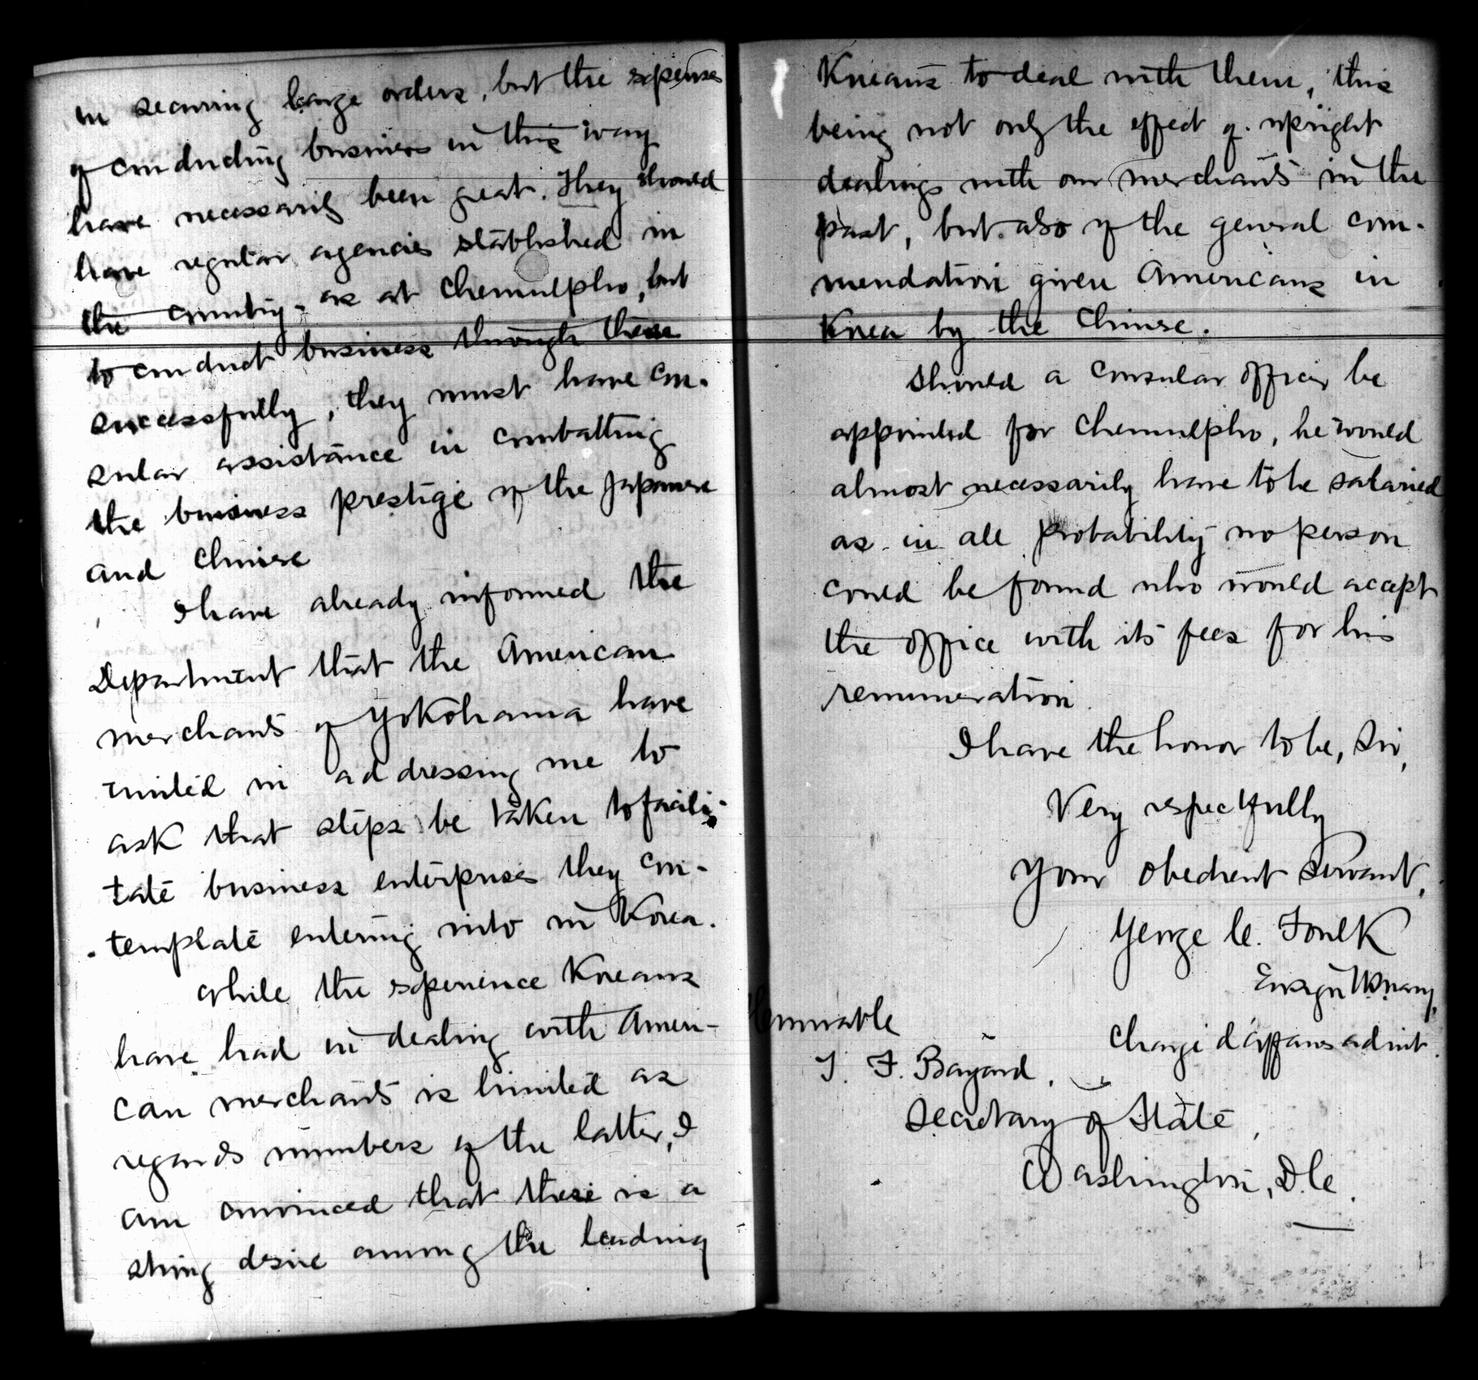 in securing large orders, but the expense
of conducting business in this way
have necessarily been great. They should
have regular agencies established in
the country - as at Chemulpho, but
to conduct business through these
successfully, they must have con-
sular assistance in combatting
the business prestige of the Japanese
and Chinese
I have already informed the
Department that the American
merchants of Yokohama have
united in addressing me to
ask that steps be taken to facili-
tate business enterprises they con-
template entering into in Korea.
While the experience Koreans
have had in dealing with Ameri-
can merchants is limited as
regards numbers of the latter, I
am convinced that there is a
strong desire among the leading
Koreans to deal with them, this
being not only the effect of upright
dealings with our merchants in the
past, but also of the general com-
mendation given Americans in
Korea by the Chinese.
Should a consular officer be
appointed for Chemulpho, he would
almost necessarily have to be salaried
as in all probability no person
could be found who would accept
the office with its fees for his
remuneration.
I have the honor to be, Sir,
Very respectfully
Your obedient servant,
George C. Foulk
Ensign U.S. Navy,
Chargé d'affaires ad int.
Honorable
T. F. Bayard,
Secretary of State,
Washington, D.C.